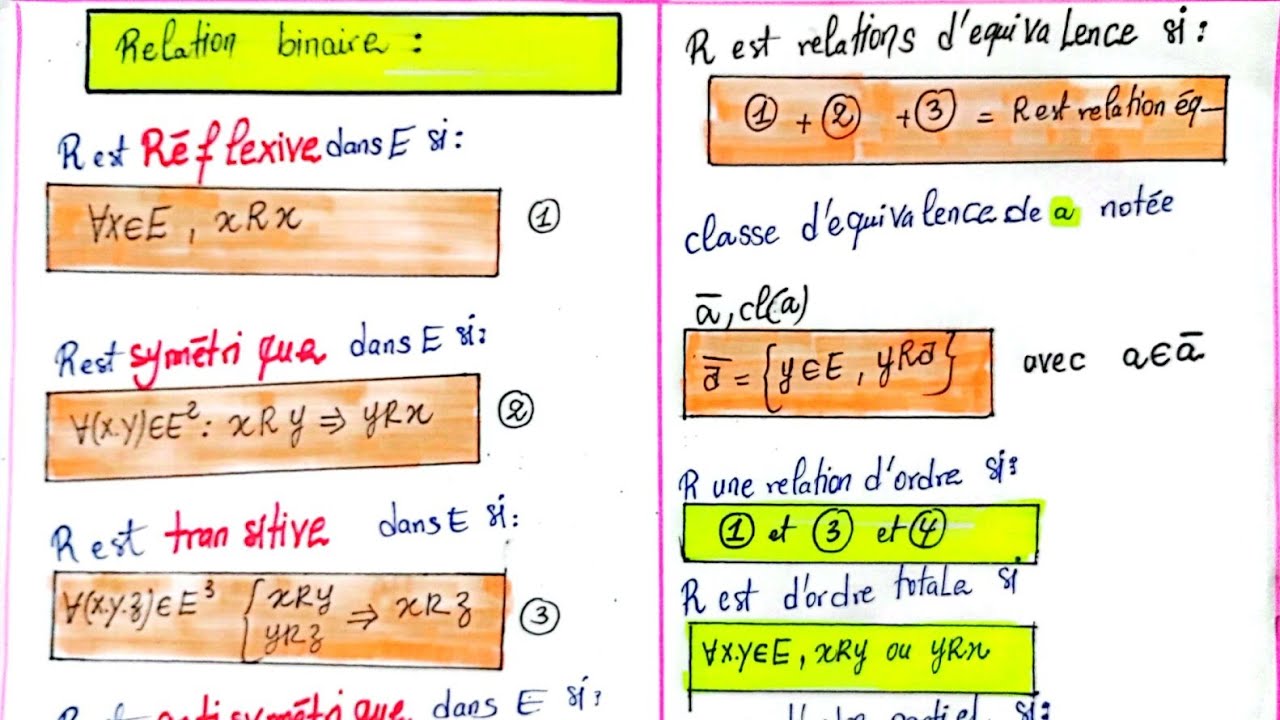 Relation binaire :
R est Réflexive dans E si :
∀x∈E , xRx ①
R est symétrique dans E si :
∀(x.y)∈E² : xRy ⇒ yRx ②
R est transitive dans E si :
∀(x.y.z)∈E³ { xRy ⇒ xRz ③
yRz
R est antisymétrique dans E si :
R est relations d'equivalence si :
① + ② + ③ = R est relation éq—
classe d'equivalence de a notée
a̅ , cl(a)
a̅ = {y∈E , yRa} avec a∈a̅
R une relation d'ordre si :
① et ③ et ④
R est d'ordre totale si
∀x.y∈E , xRy ou yRx
si :